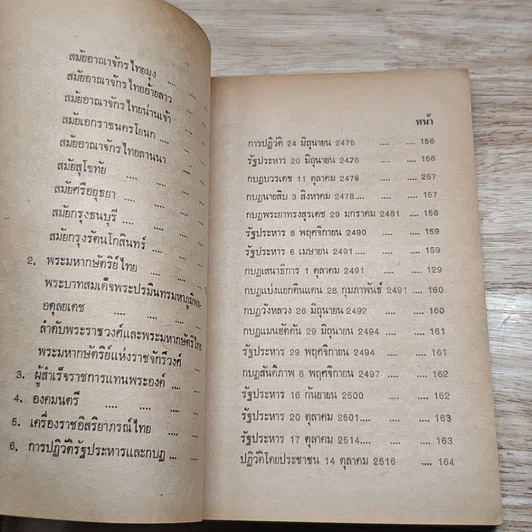 สมัยอาณาจักรไทยมุง .... ....
สมัยอาณาจักรไทยอ้ายลาว
สมัยอาณาจักรไทยน่านเจ้า
สมัยเอกราชนครโยนก ....
สมัยอาณาจักรไทยลานนา
สมัยสุโขทัย .... ....
สมัยศรีอยุธยา .... ....
สมัยกรุงธนบุรี .... ....
สมัยกรุงรัตนโกสินทร์ ....
2. พระมหากษัตริย์ไทย ....
พระบาทสมเด็จพระปรมินทรมหาภูมิพล
อดุลยเดช .... ....
ลำดับพระราชวงศ์และพระมหากษัตริย์ไทย
พระมหากษัตริย์แห่งราชจักรีวงศ์
3. ผู้สำเร็จราชการแทนพระองค์ ....
4. องคมนตรี .... .... ....
5. เครื่องราชอิสริยาภรณ์ไทย ....
6. การปฏิวัติรัฐประหารและกบฏ ....
หน้า
การปฏิวัติ 24 มิถุนายน 2475 .... .... 156
รัฐประหาร 20 มิถุนายน 2476 .... .... 156
กบฏบวรเดช 11 ตุลาคม 2476 .... .... 257
กบฏนายสิบ 3 สิงหาคม 2478.... .... 157
กบฏพระยาทรงสุรเดช 29 มกราคม 2481 .... 158
รัฐประหาร 8 พฤศจิกายน 2490 .... 159
รัฐประหาร 6 เมษายน 2491 .... .... 159
กบฏเสนาธิการ 1 ตุลาคม 2491 .... 129
กบฏแบ่งแยกดินแดน 28 กุมภาพันธ์ 2491 .... 160
กบฏวังหลวง 26 มิถุนายน 2492 .... 160
กบฏแมนฮัตตัน 29 มิถุนายน 2494 .... 161
รัฐประหาร 29 พฤศจิกายน 2494 .... 161
กบฏสันติภาพ 8 พฤศจิกายน 2497 .... 162
รัฐประหาร 16 กันยายน 2500 .... 162
รัฐประหาร 20 ตุลาคม 2501 .... .... 163
รัฐประหาร 17 ตุลาคม 2514.... .... 163
ปฏิวัติโดยประชาชน 14 ตุลาคม 2516 .... 164